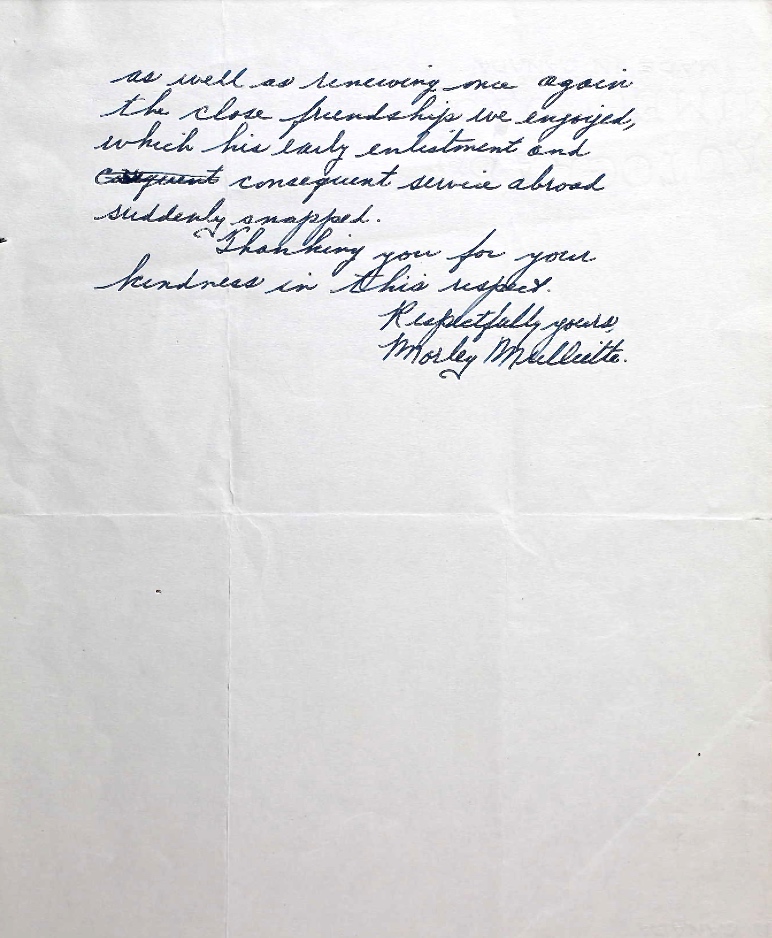 as well as renewing once again
the close friendship we enjoyed,
which his early enlistment and
consequent service abroad
suddenly snapped.
Thanking you for your
kindness in this respect.
Respectfully yours,
Morley